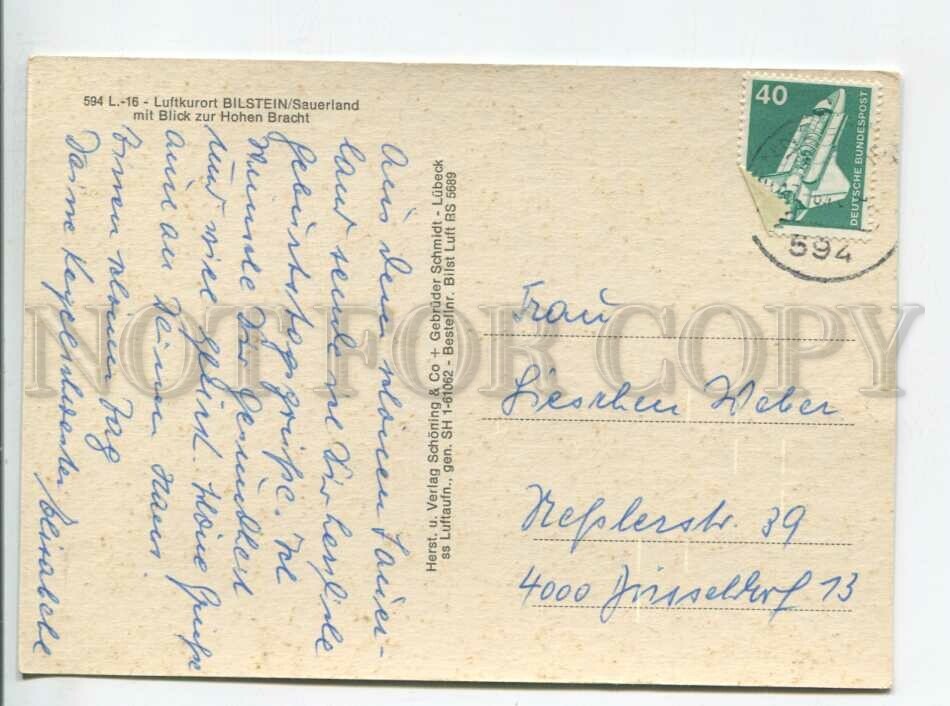 594 L.-16 - Luftkurort BILSTEIN/Sauerland
mit Blick zur Hohen Bracht
Aus dem schönen Sauer-
land sende ich Dir herzliche
Geburtstagsgrüße. Ich
wünsche Dir Gesundheit
und viel Glück. Schöne Grüße
auch an Deinen Hans.
Einen schönen Tag
Deine Kegelschwester
Herst. u. Verlag Schöning & Co + Gebrüder Schmidt - Lübeck
ss Luftaufn., gen. SH 1-61062 - Bestellnr. Bilst Luft RS 5689
40
DEUTSCHE BUNDESPOST
594
Frau
Lieschen Weber
Heßlerstr. 39
4000 Düsseldorf 13
NOT FOR COPY